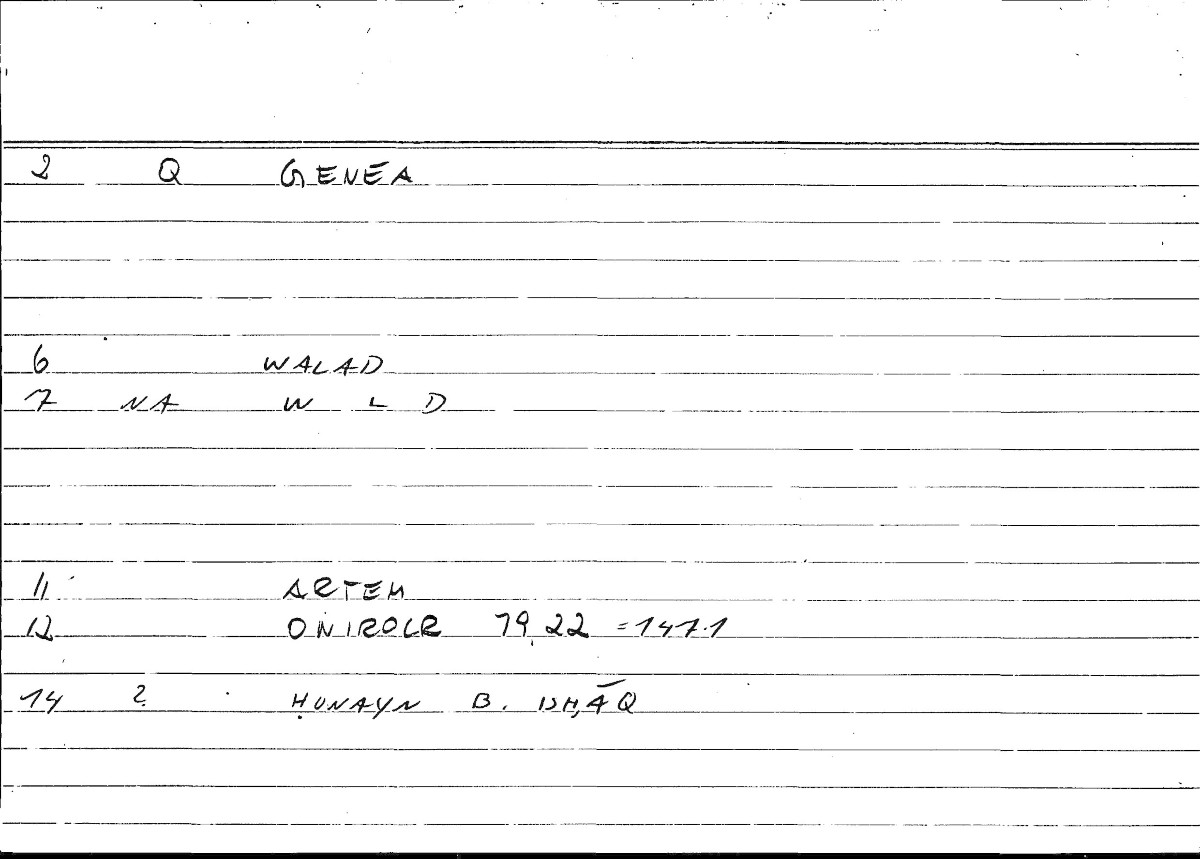 2 Q GENEÁ
6 WALAD
7 NA W L D
11 ARTEM
12 ONIROCR 79,22 =147.1
14 2 ḤUNAYN B. ISḤĀQ